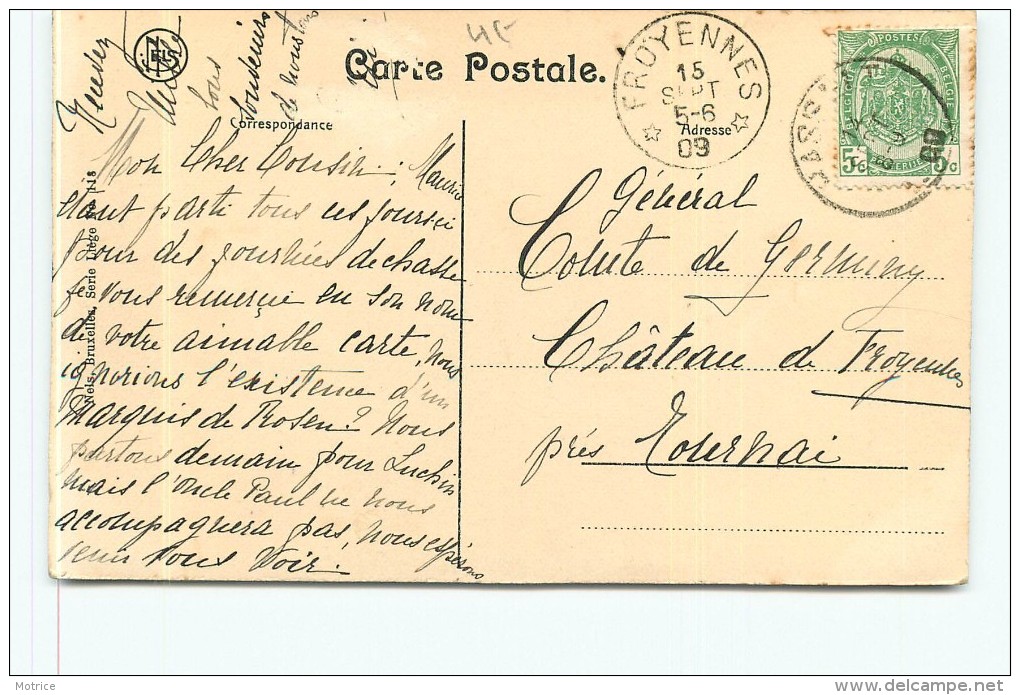 4€
NELS
Carte Postale.
FROYENNES
15
SEPT
5-6
09
POSTES
BELGIQUE
BELGIË
5 c
5 c
09
Correspondance
Adresse
Mon Cher Cousin, Maurice
étant parti tous ces jours ci
pour des journées de chasse
je vous remercie en son nom
de votre aimable carte, nous
ignorions l'existence d'un
Marquis de Rosen? Nous
partons demain pour Luchin
mais l'oncle Paul ne nous
accompagnera pas, nous espérons
venir vous voir.
tous
souvenirs
de nous tous
Général
Comte de Germiny
Château de Froyennes
près Tournai
Nels, Bruxelles, Série Liège No 118
Motrice
www.delcampe.net